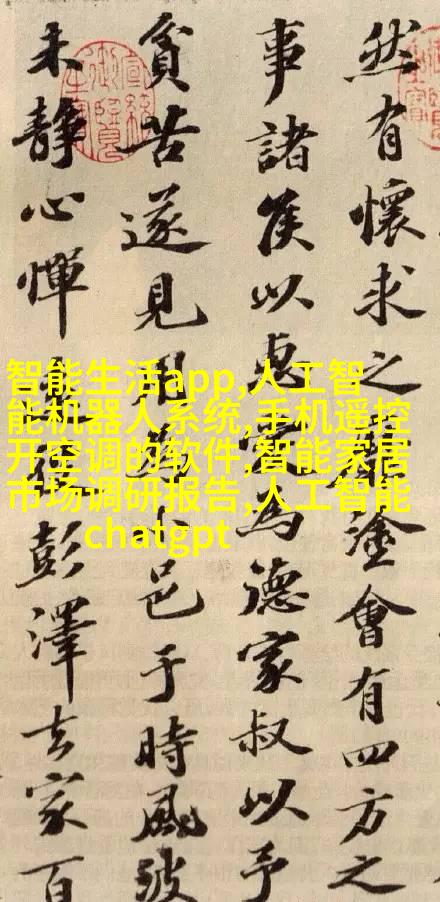 然有懷求之靡塗會有四方之
事諸侯以惠愛為德家叔以予
貧苦遂見用小邑于時風波
未靜心憚遠役彭澤去家百
智能生活app,人工智
能机器人系统,手机遥控
开空调的软件,智能家居
市场调研报告,人工智能
chatgpt